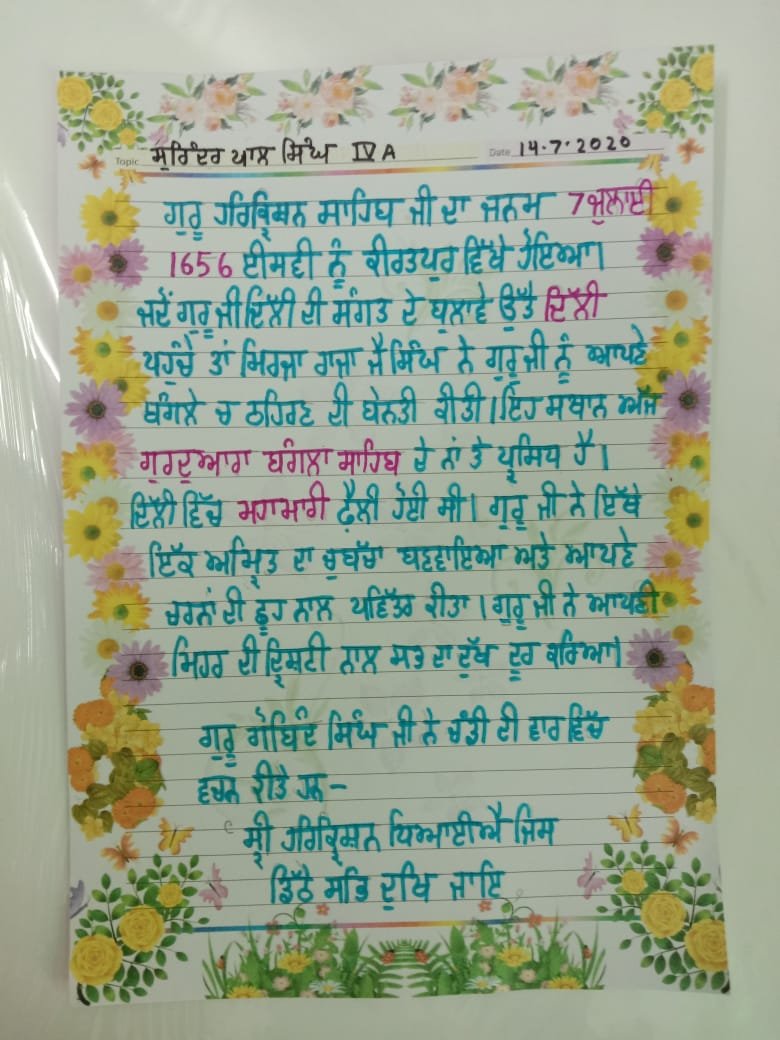 Topic ਸੁਰਿੰਦਰ ਪਾਲ ਸਿੰਘ IV A Date 14.7.2020
ਗੁਰੂ ਹਰਿਕ੍ਰਿਸ਼ਨ ਸਾਹਿਬ ਜੀ ਦਾ ਜਨਮ 7 ਜੁਲਾਈ
1656 ਈਸਵੀ ਨੂੰ ਕੀਰਤਪੁਰ ਵਿੱਖੇ ਹੋਇਆ।
ਜਦੋਂ ਗੁਰੂ ਜੀ ਦਿੱਲੀ ਦੀ ਸੰਗਤ ਦੇ ਬੁਲਾਵੇ ਉੱਤੇ ਦਿੱਲੀ
ਪਹੁੰਚੇ ਤਾਂ ਮਿਰਜ਼ਾ ਰਾਜਾ ਜੈ ਸਿੰਘ ਨੇ ਗੁਰੂ ਜੀ ਨੂੰ ਆਪਣੇ
ਬੰਗਲੇ ਚ ਠਹਿਰਣ ਦੀ ਬੇਨਤੀ ਕੀਤੀ। ਇਹ ਸਥਾਨ ਅੱਜ
ਗੁਰਦੁਆਰਾ ਬੰਗਲਾ ਸਾਹਿਬ ਦੇ ਨਾਂ ਤੇ ਪ੍ਰਸਿਧ ਹੈ।
ਦਿੱਲੀ ਵਿੱਚ ਮਹਾਮਾਰੀ ਫੈਲੀ ਹੋਈ ਸੀ। ਗੁਰੂ ਜੀ ਨੇ ਇੱਥੇ
ਇੱਕ ਅਮ੍ਰਿਤ ਦਾ ਚੁਬੱਚਾ ਬਣਵਾਇਆ ਅਤੇ ਆਪਣੇ
ਚਰਨਾਂ ਦੀ ਛੂਹ ਨਾਲ ਪਵਿੱਤਰ ਕੀਤਾ। ਗੁਰੂ ਜੀ ਨੇ ਆਪਣੀ
ਮਿਹਰ ਦੀ ਦ੍ਰਿਸ਼ਟੀ ਨਾਲ ਸਭ ਦਾ ਦੁੱਖ ਦੂਰ ਕਰਿਆ।
ਗੁਰੂ ਗੋਬਿੰਦ ਸਿੰਘ ਜੀ ਨੇ ਚੰਡੀ ਦੀ ਵਾਰ ਵਿੱਚ
ਵਚਨ ਕੀਤੇ ਹਨ -
ਸ੍ਰੀ ਹਰਿਕ੍ਰਿਸ਼ਨ ਧਿਆਈਐ ਜਿਸ
ਡਿੱਠੈ ਸਭਿ ਦੁਖਿ ਜਾਇ